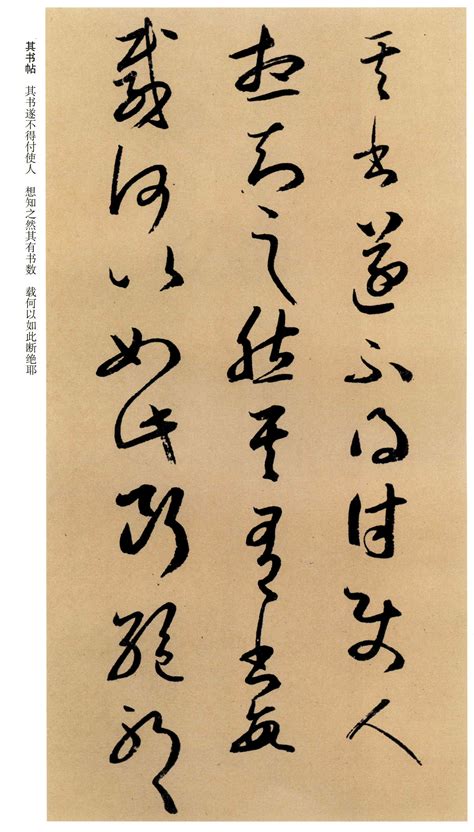 其書遂不得付使人
想知之然其有書數
載何以如此斷絕耶
其书帖 其书遂不得付使人 想知之然其有书数 载何以如此断绝耶